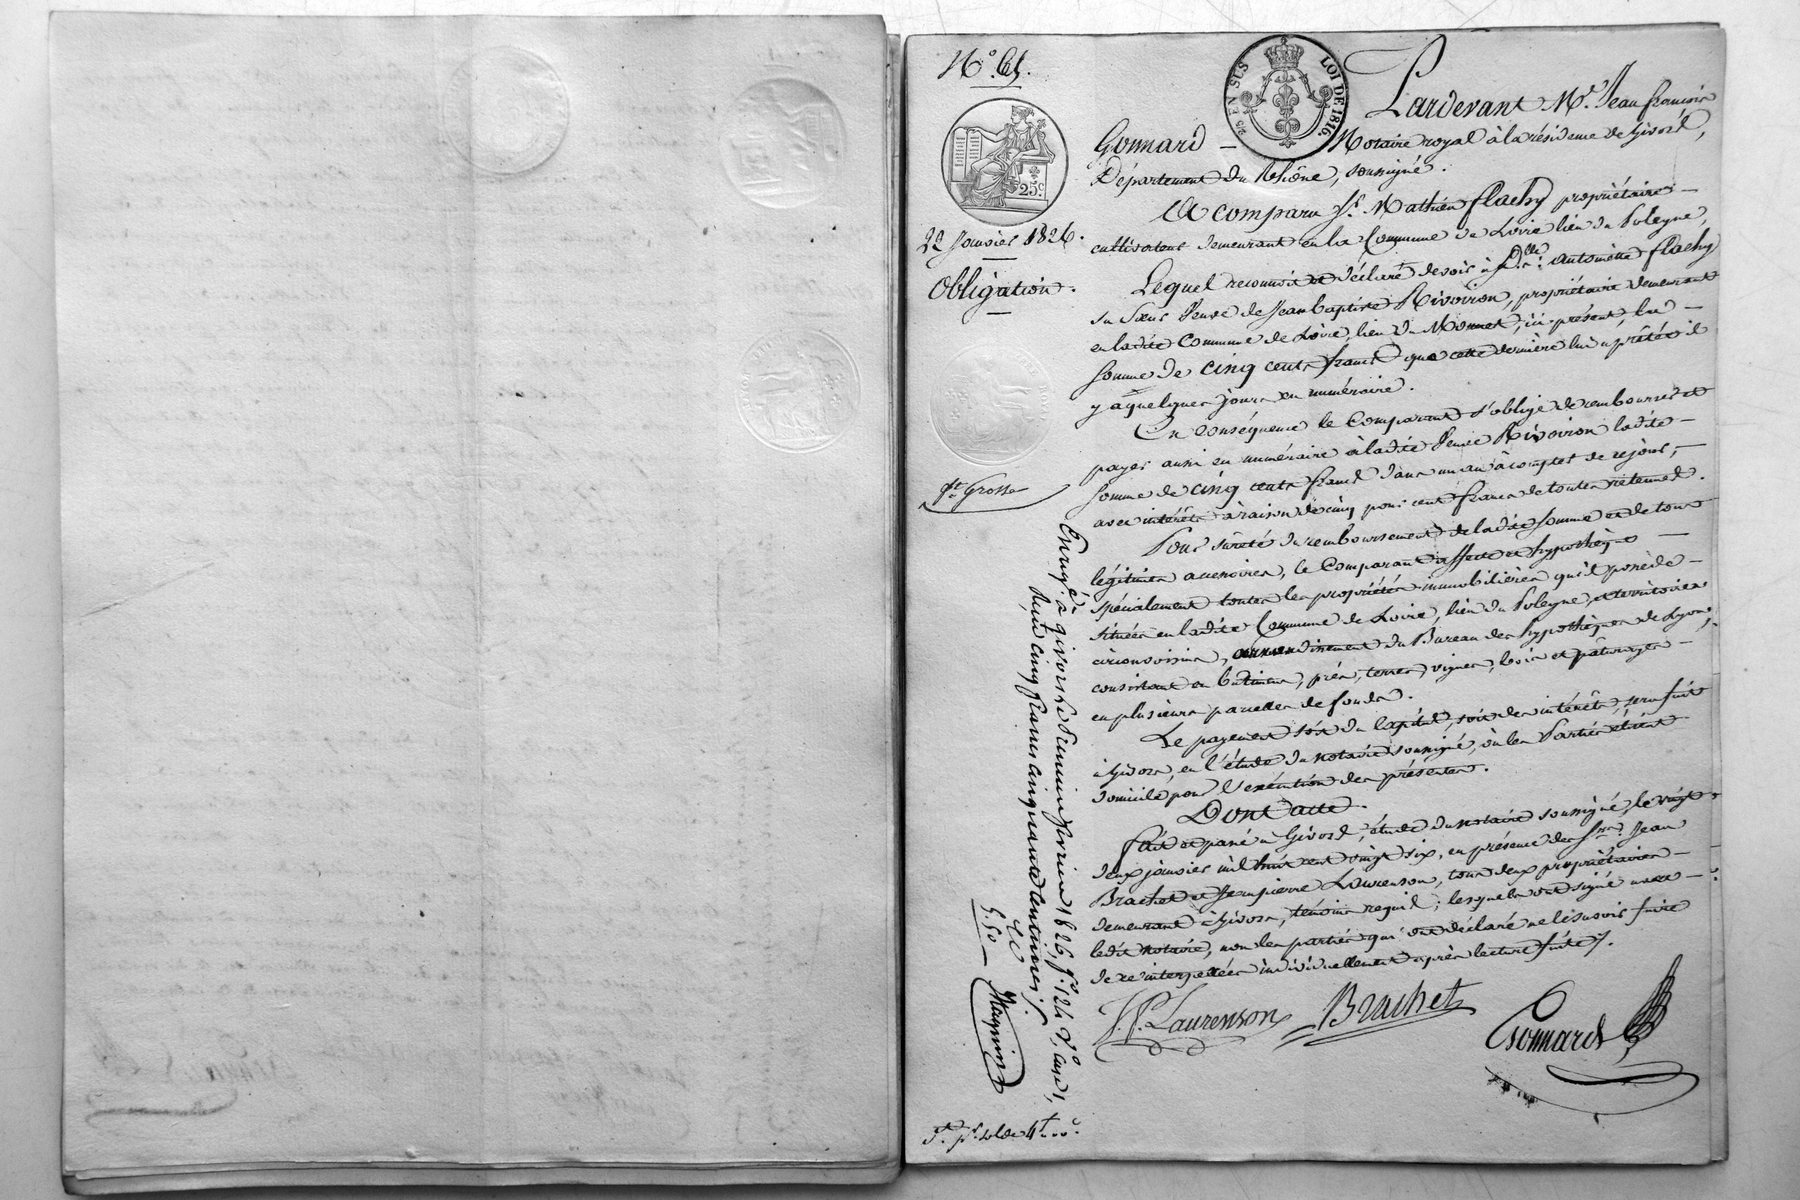 N.° 65.
25.c
22 Janvier 1826.
Obligation.
gte Grosse
EN SUS
LOI DE 1816.
Pardevant Me. Jean françois
Gonnard — Notaire royal à la résidence de Givors,
Département du Rhône, soussigné.
A comparu Sr. Mathieu flachy propriétaire —
cultivateur demeurant en la Commune de Loire lieu du Poleyne,
Lequel reconnoit et déclare devoir à Dlle. antoinette flachy
sa Sœur Veuve de Jean baptiste Rivoiron, propriétaire demeurant
en ladite Commune de Loire, lieu du Monnet, ici présent, la —
somme de cinq cents francs que cette dernière lui a prêtée il
y a quelques jours en numéraire.
En conséquence le Comparant s'oblige de rembourser et
payer aussi en numéraire à ladite Veuve Rivoiron ladite —
somme de cinq cents francs dans un an à compter de ce jour, —
avec intérêts à raison de cinq pour cent francs de toutes retenues.
Pour sûreté du remboursement de ladite somme et de tous
légitimes accessoires, le Comparant affecte et hypothèque —
spécialement toutes les propriétés immobilières qu'il possède —
situées en ladite Commune de Loire, lieu du Poleyne, et territoires
circonvoisins, arrondissement du Bureau des hypothèques de Lyon,
consistant en bâtimens, prés, terres, vignes, bois et pâturages —
en plusieurs parcelles de fonds.
Le payement soit du capital, soit des intérêts, sera fait
à Givors, en l'étude du notaire soussigné, où les Parties élisent
domicile pour l'exécution des présentes.
Dont acte.
fait et passé à Givors, étude du notaire soussigné, le vingt
deux janvier mil huit cent vingt six, en présence des Srs. Jean
Brachet et Jean pierre Laurenson, tous deux propriétaires —
demeurant à Givors, témoins requis; lesquels ont signé avec —
ledit notaire, non les parties qui ont déclaré ne le savoir faire
de ce interpellées individuellement après lecture faite.
J. P. Laurenson
Brachet
Gonnard
Enregé. à givors le Premier fevrier 1826, f.° 124 V.° case 1,
reçu cinq francs cinquante centimes
5,50 —